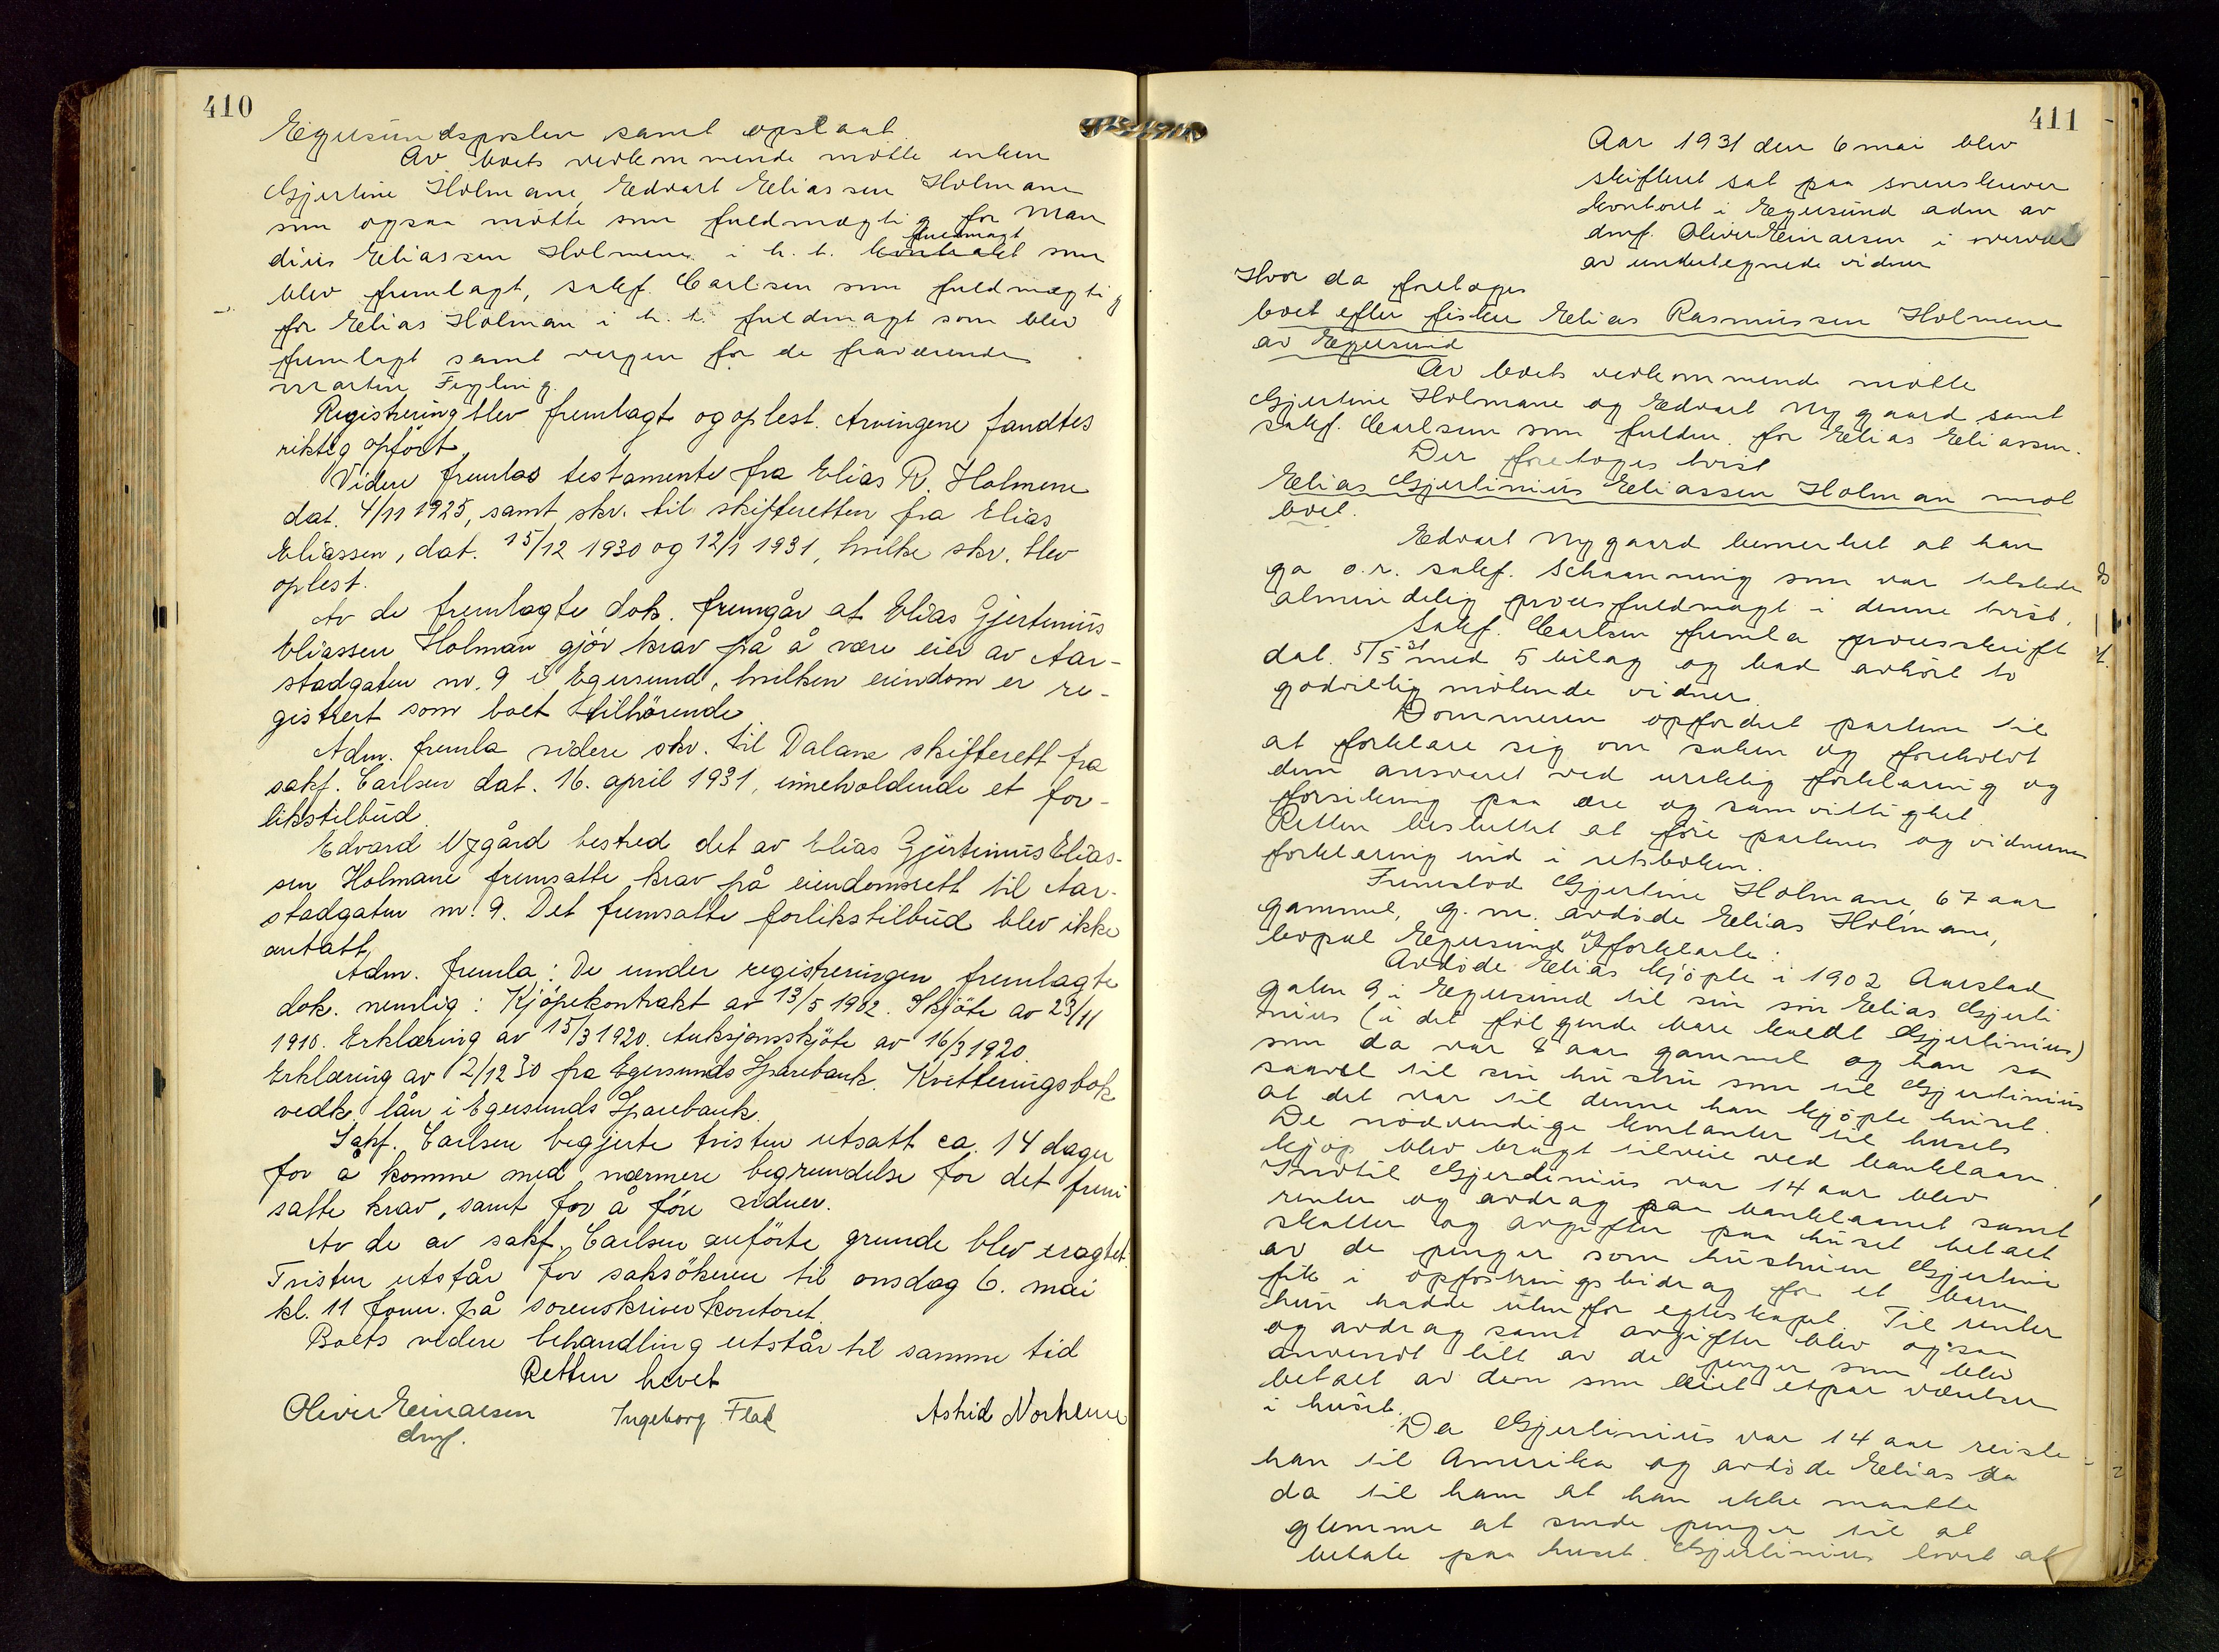 410
Egersundsposten samt opslaat
Av boets vedkommende møtte enken
Gjertine Holmane, Edvart Eliassen Holmane
som ogsaa møtte som fuldmægtig for Man
dius Eliassen Holmene i h. t. kontrakt fuldmagt som
blev fremlagt, sakf. Carlsen som fuldmægtig
for Elias Holman i h. t. fuldmagt som blev
fremlagt samt vergen for de fraværende
Martin Fegling.
Registrering blev fremlagt og oplest. Arvingene fandtes
riktig opført.
Videre fremlas testamente fra Elias R. Holmene
dat. 4/11 1925, samt skr. til skifteretten fra Elias
Eliassen, dat. 15/12 1930 og 12/1 1931, hvilke skr. blev
oplest.
Av de fremlagte dok. fremgår at Elias Gjertinius
Eliassen Holman gjør krav på å være eier av Aar-
stadgaten nr. 9 i Egersund, hvilken eiendom er re-
gistrert som boet tilhørende.
Adm. fremla videre skr. til Dalane skifterett fra
sakf. Carlsen dat. 16. april 1931, inneholdende et for-
likstilbud.
Edvard Nygård bestred det av Elias Gjertinius Elias-
sen Holmane fremsatte krav på eiendomsrett til Aar-
stadgaten nr. 9. Det fremsatte forlikstilbud blev ikke
antatt.
Adm. fremla: De under registreringen fremlagte
dok. nemlig: Kjøpekontrakt av 13/5 1902. Skjøte av 23/11
1910. Erklæring av 15/3 1920. Auksjonsskjøte av 16/3 1920.
Erklæring av 2/12 30 fra Egersunds Sparebank. Kvitteringsbok
vedk. lån i Egersunds Sparebank.
Sakf. Carlsen begjerte tristen utsatt ca. 14 dager
for å komme med nærmere begrundelse for det frem
satte krav, samt for å føre vidner.
Av de av sakf. Carlsen anførte grunde blev eragtet:
Tvisten utstår for saksøkeren til onsdag 6. mai
kl. 11 form. på sorenskriverkontoret.
Boets videre behandling utstår til samme tid
Retten hevet
Oliver Einarsen Ingeborg Flak Astrid
dmf.
411
Aar 1931 den 6 mai blev
skifteret sat paa sorenskriver
kontoret i Egersund adm av
dmf. Oliver Einarsen i overvær
av undertegnede vidner
Hvor da foretoges
boet efter fisker Elias Rasmussen Holmene
av Egersund
Av boets vedkommende møtte
Gjertine Holmane og Edvart Nygaard samt
sakf. Carlsen som fuldm. for Elias Eliassen.
Der foretoges tvist
Elias Gjertinius Eliassen Holman mot
boet.
Edvart Nygaard bemerket at han
ga o.r. sakf. Schaanning som var tilstede
almindelig procesfuldmagt i denne tvist.
Sakf. Carlsen fremla processkrift
dat. 5/5 31 med 5 bilag og bad avhørt to
godvillig møtende vidner.
Dommeren opfordret partene til
at forklare sig om saken og foreholdt
dem ansvaret ved urиktig forklaring og
forsikring paa ære og samvittighet.
Retten besluttet at føre partenes og vidnernes
forklaring ind i retsboken.
Fremstod Gjertine Holmane, 67 aar
gammel, g. m. avdøde Elias Holmane,
bopæl Egersund og forklarte:
Avdøde Elias kjøpte i 1902 Aarstad
gaten 9 i Egersund til sin søn Elias Gjerti
nius (i det følgende bare kaldt Gjertinius)
som da var 8 aar gammel og han sa
saavel til sin hustru som til Gjertinius
at det var til denne han kjøpte huset.
De nødvendige kontanter til husets
kjøp blev bragt tilveie ved banklaan.
Indtil Gjerdinius var 14 aar blev
renter og avdrag paa banklaanet samt
skatter og avgifter paa huset betalt
av de penger som hustruen Gjertine
fik i opfostringsbidrag for et barn
hun hadde utenfor egteskapet. Til renter
og avdrag samt avgifter blev ogsaa
anvendt litt av de penger som blev
betalt av dem som leiet etpar værelser
i huset.
Da Gjertinius var 14 aar reiste
han til Amerika og avdøde Elias sa
da til ham at han ikke maatte
glemme at sende penger til at
betale paa huset. Gjertinius lovet at